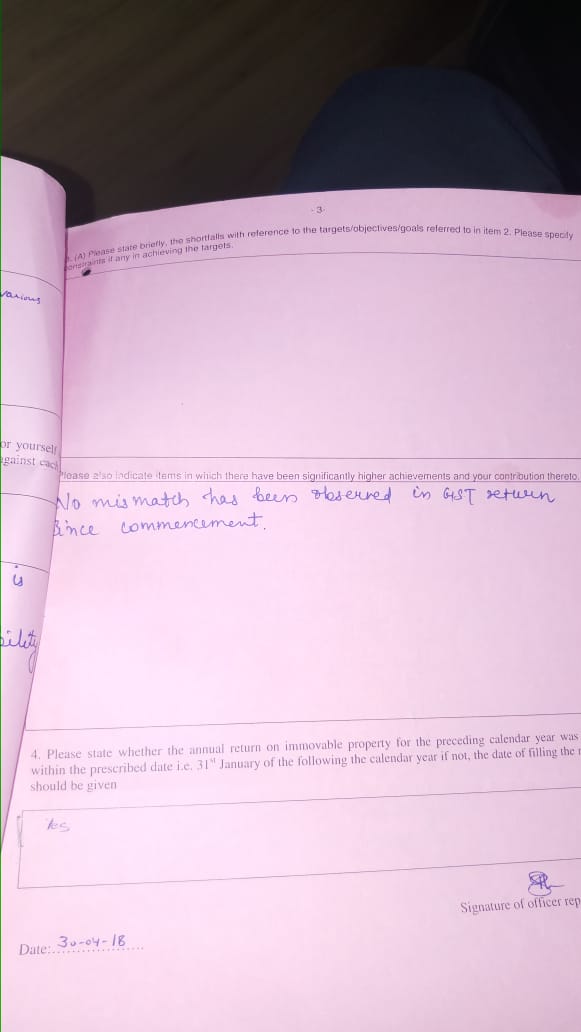 - 3-
3. (A) Please state briefly, the shortfalls with reference to the targets/objectives/goals referred to in item 2. Please specify
constraints if any in achieving the targets.
various
or yourself
against each
Please also indicate items in which there have been significantly higher achievements and your contribution thereto.
No mismatch has been observed in GST return
Since commencement.
is
bility
4. Please state whether the annual return on immovable property for the preceding calendar year was
within the prescribed date i.e. 31st January of the following the calendar year if not, the date of filling the r
should be given
Yes
Signature of officer rep
Date:..30-04-18....